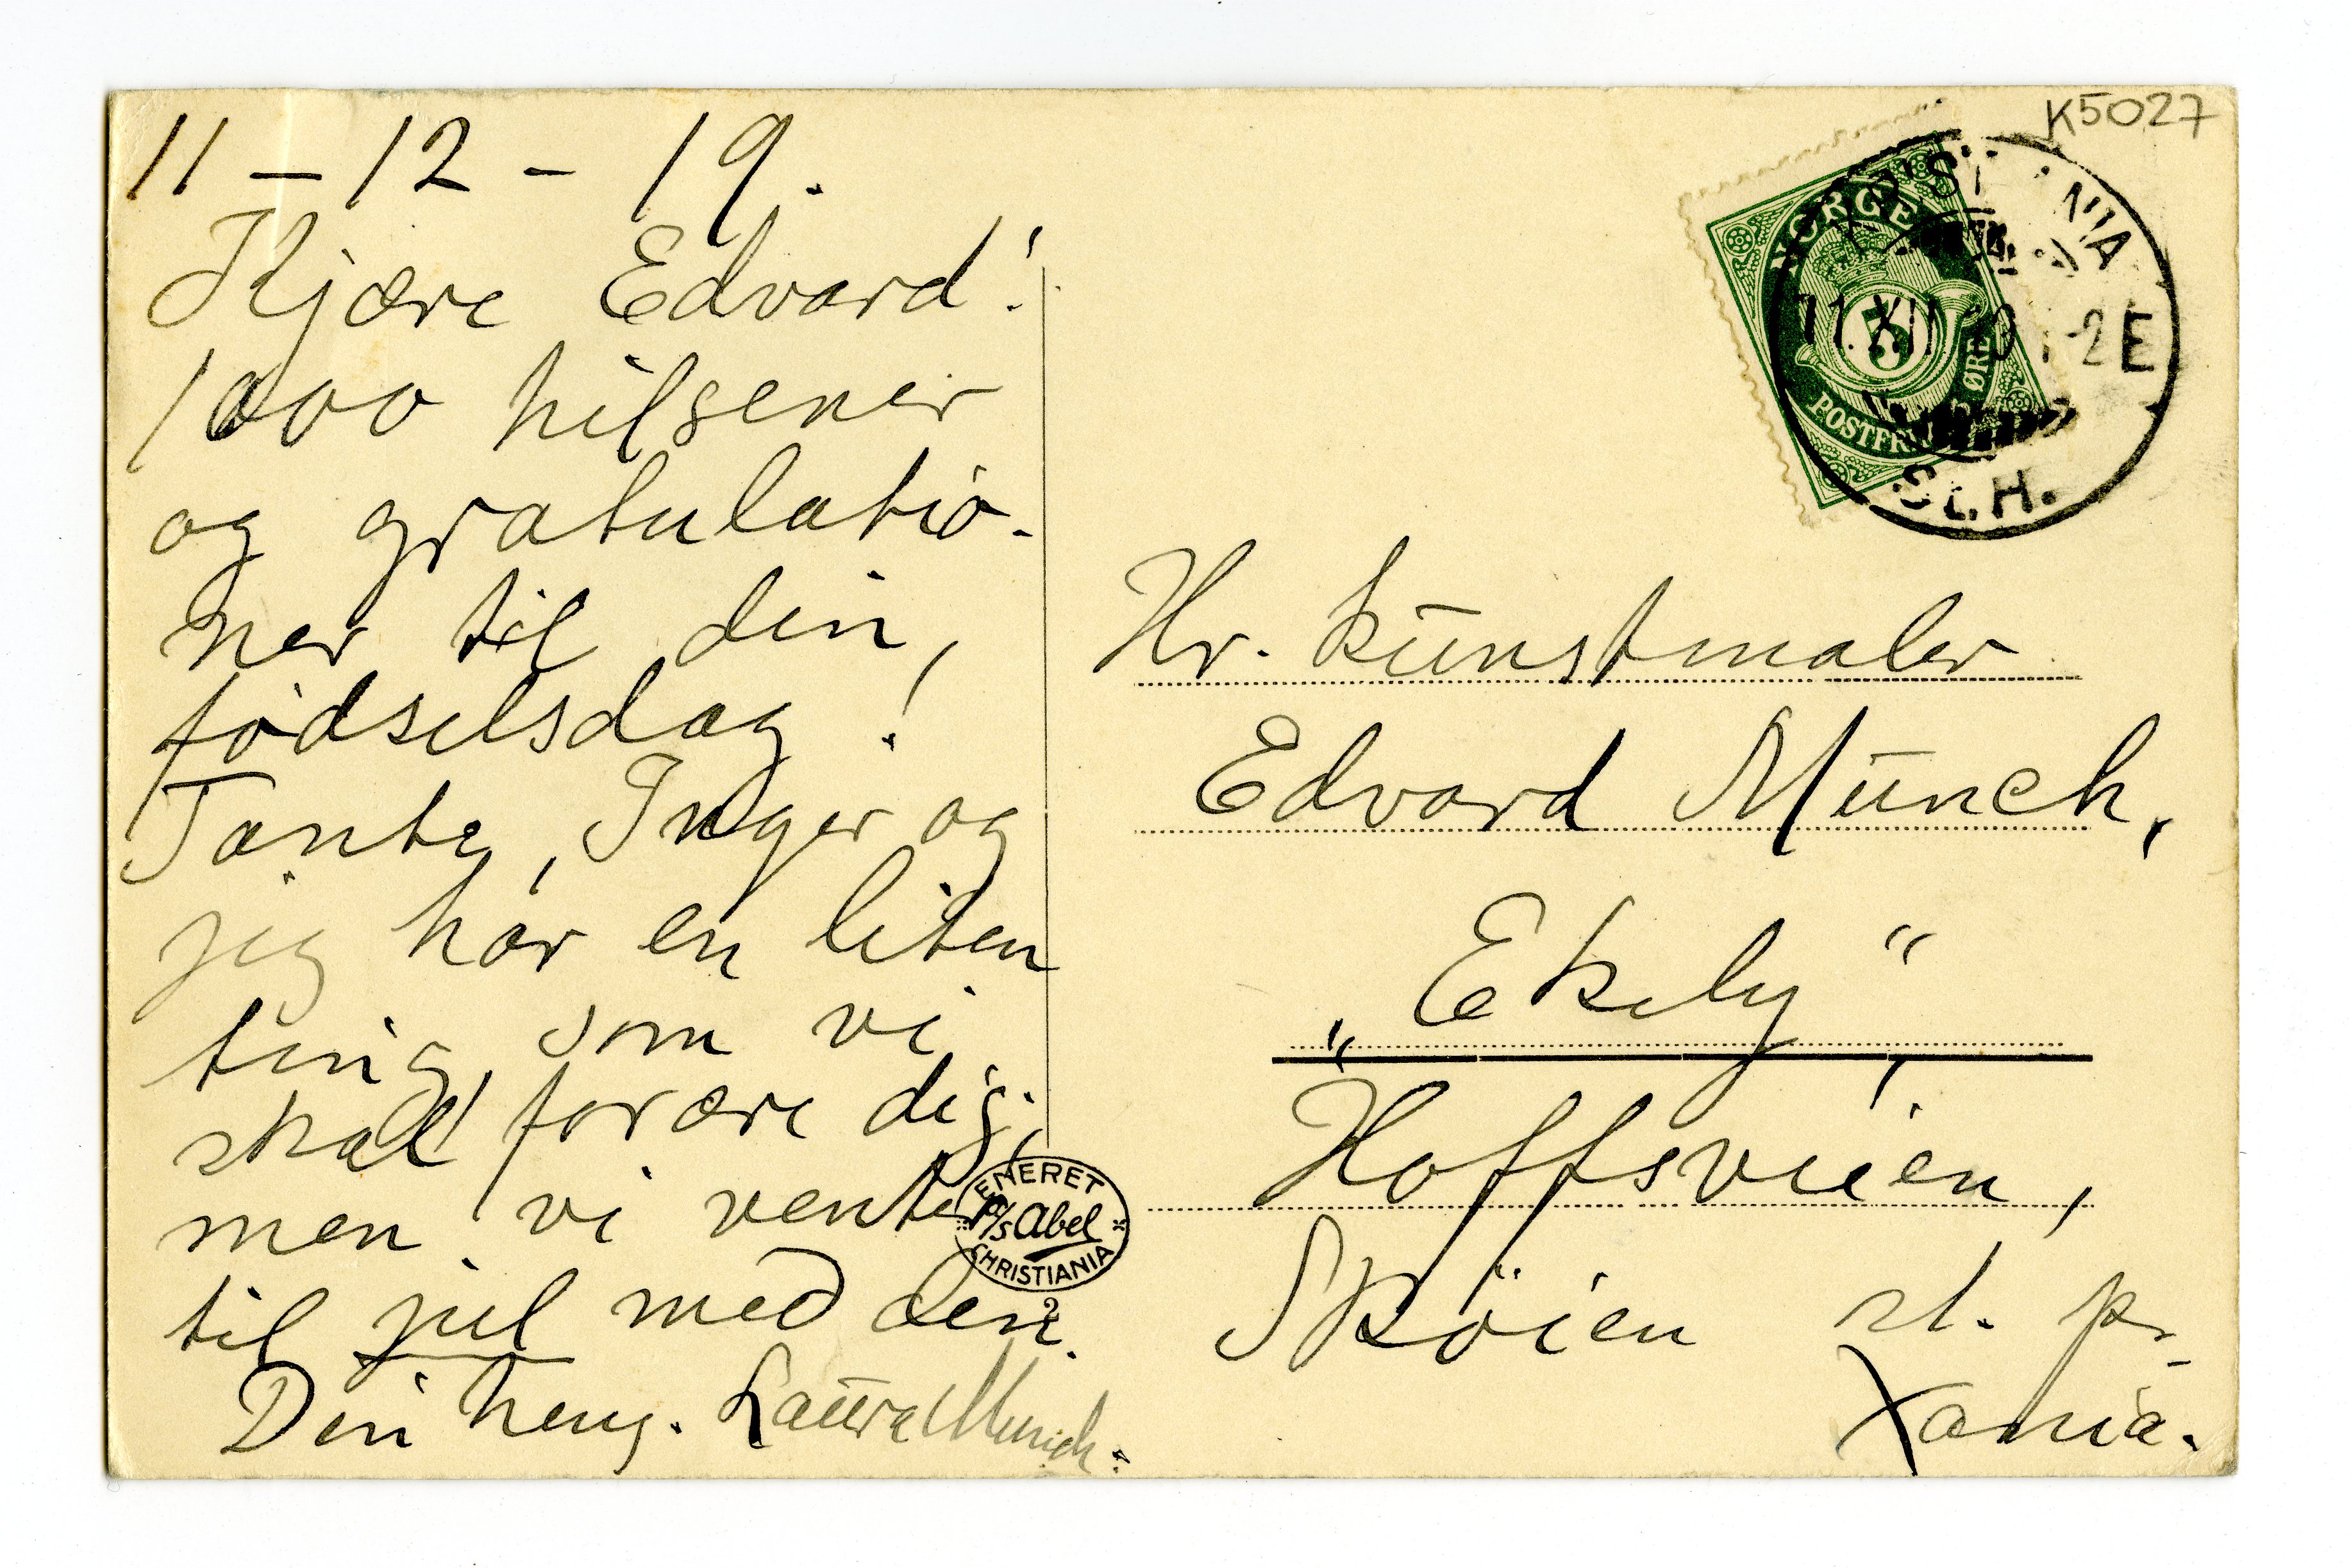 11 – 12 – 19.
Kjære Edvard!
1000 hilsener
og gratulatio-
ner til din
fødselsdag!
Tante, Inger og
jeg har en liten
ting, som vi
skal forære dig,
men vi venter
til jul med den.
Din heng. Laura Munch.
K5027
NORGE
5
ØRE
11.XII 19 1-2E
ST.H.
Hr. kunstmaler
Edvard Munch,
„Ekely“,
Hoffsveien,
Skøien st. pr
Xania.
ENERET
A/S Abel
CHRISTIANIA
2